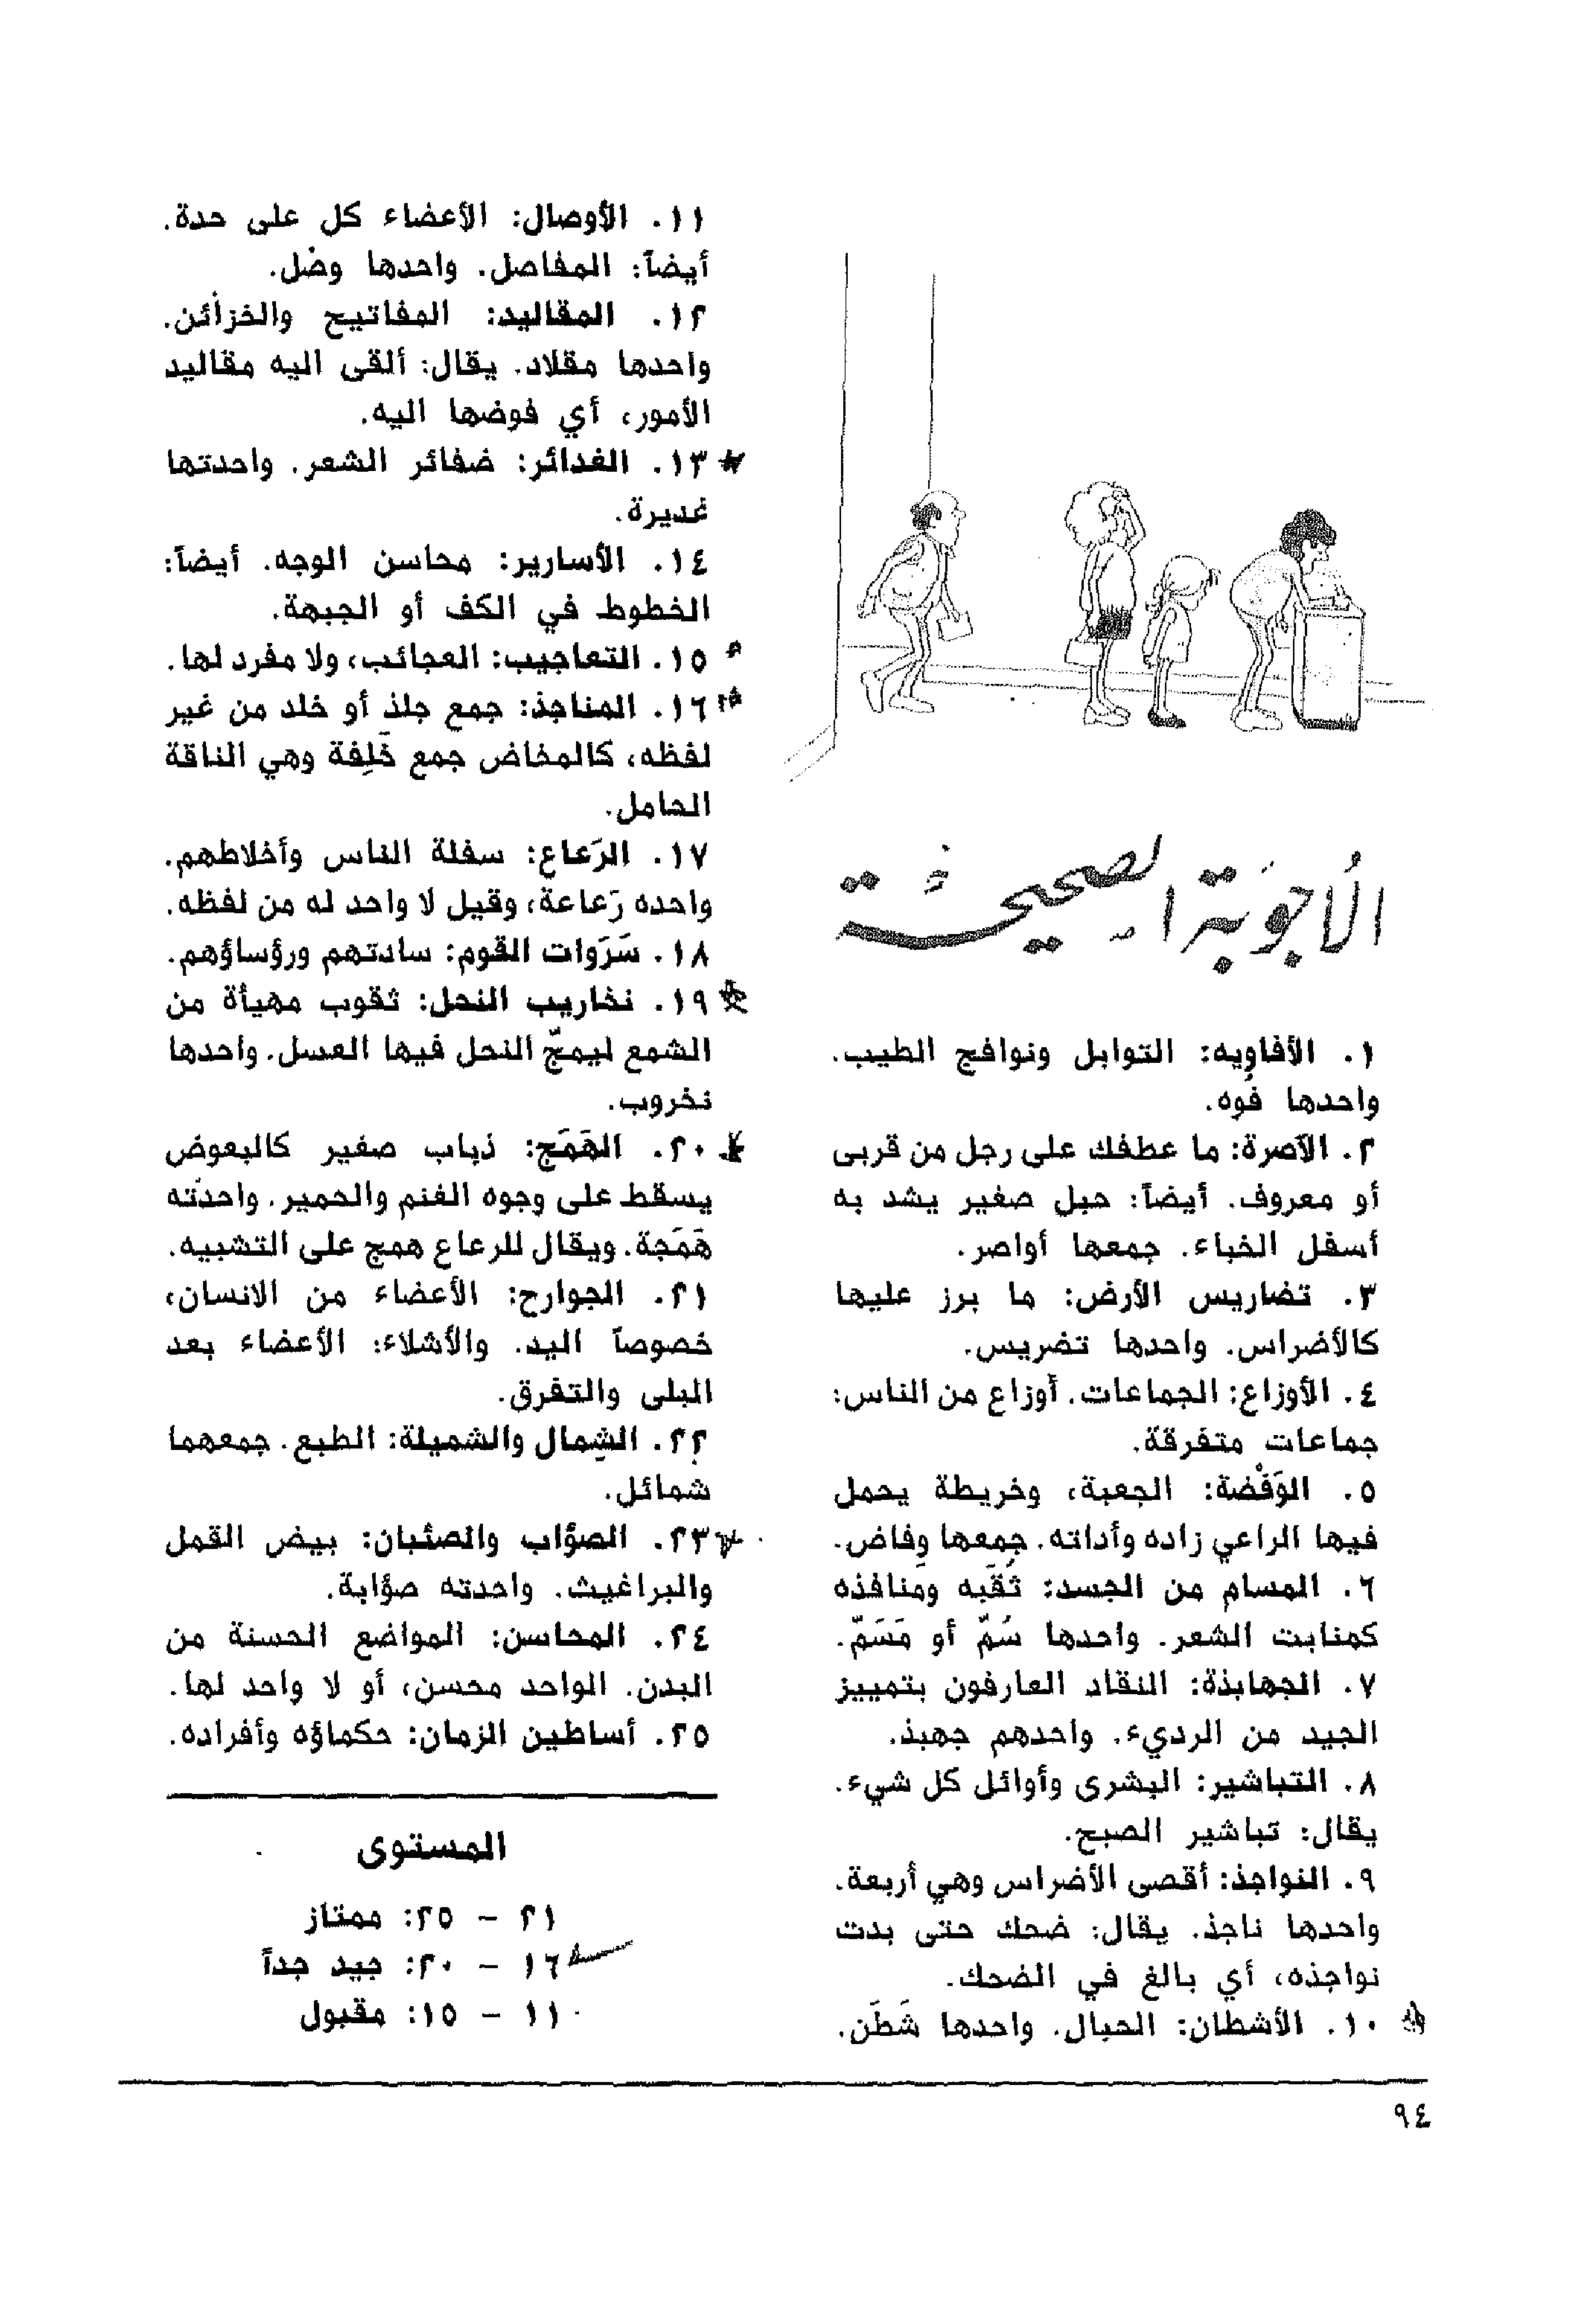 الأجوبة الصحيحة
١. الأفاوِيه: التوابل ونوافج الطيب.
واحدها فُوه.
٢. الآصرة: ما عطفك على رجل من قربى
أو معروف. أيضاً: حبل صغير يشد به
أسفل الخباء. جمعها أواصر.
٣. تضاريس الأرض: ما برز عليها
كالأضراس. واحدها تضريس.
٤. الأوزاع: الجماعات. أوزاع من الناس:
جماعات متفرقة.
٥. الوَفْضة: الجعبة، وخريطة يحمل
فيها الراعي زاده وأداته. جمعها وِفاض.
٦. المسام من الجسد: ثُقَبه ومنافذه
كمنابت الشعر. واحدها سُمّ أو مَسَمّ.
٧. الجهابذة: النقاد العارفون بتمييز
الجيد من الرديء. واحدهم جهبذ.
٨. التباشير: البشرى وأوائل كل شيء.
يقال: تباشير الصبح.
٩. النواجذ: أقصى الأضراس وهي أربعة.
واحدها ناجذ. يقال: ضحك حتى بدت
نواجذه، أي بالغ في الضحك.
١٠. الأشطان: الحبال. واحدها شَطَن.
١١. الأوصال: الأعضاء كل على حدة.
أيضاً: المفاصل. واحدها وصْل.
١٢. المقاليد: المفاتيح والخزائن.
واحدها مقلاد. يقال: ألقى اليه مقاليد
الأمور، أي فوضها اليه.
١٣. الغدائر: ضفائر الشعر. واحدتها
غديرة.
١٤. الأسارير: محاسن الوجه. أيضاً:
الخطوط في الكف أو الجبهة.
١٥. التعاجيب: العجائب، ولا مفرد لها.
١٦. المناجذ: جمع جلذ أو خلد من غير
لفظه، كالمخاض جمع خَلِفة وهي الناقة
الحامل.
١٧. الرَعاع: سفلة الناس وأخلاطهم.
واحده رَعاعة، وقيل لا واحد له من لفظه.
١٨. سَرَوات القوم: سادتهم ورؤساؤهم.
١٩. نخاريب النحل: ثقوب مهيأة من
الشمع ليمجّ النحل فيها العسل. واحدها
نخروب.
٢٠. الهَمَج: ذباب صغير كالبعوض
يسقط على وجوه الغنم والحمير. واحدته
هَمَجة. ويقال للرعاع همج على التشبيه.
٢١. الجوارح: الأعضاء من الانسان،
خصوصاً اليد. والأشلاء: الأعضاء بعد
البلى والتفرق.
٢٢. الشِمال والشميلة: الطبع. جمعهما
شمائل.
٢٣. الصؤاب والصئبان: بيض القمل
والبراغيث. واحدته صؤابة.
٢٤. المحاسن: المواضع الحسنة من
البدن. الواحد محسن، أو لا واحد لها.
٢٥. أساطين الزمان: حكماؤه وأفراده.
المستوى
٢١ – ٢٥: ممتاز
١٦ – ٢٠: جيد جداً
١١ – ١٥: مقبول
٩٤